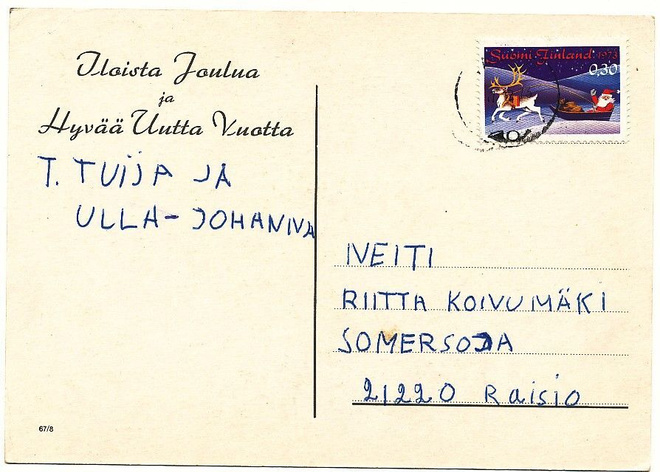 Iloista Joulua
ja
Hyvää Uutta Vuotta
T. TUIJA JA
ULLA-JOHANNA
Suomi-Finland 1973
0,30
NEITI
RIITTA KOIVUMÄKI
SOMERSOJA
21220 Raisio
67/8